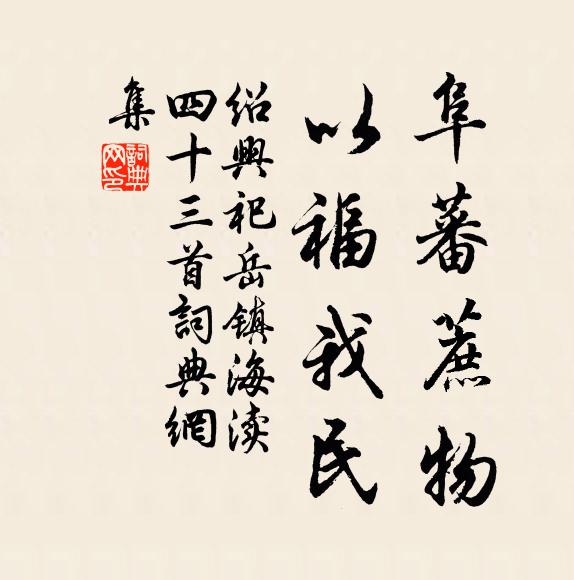 阜蕃蔗物
以福我民
紹興祀岳鎮海渎
四十三首詞典網
集
詞典
网印